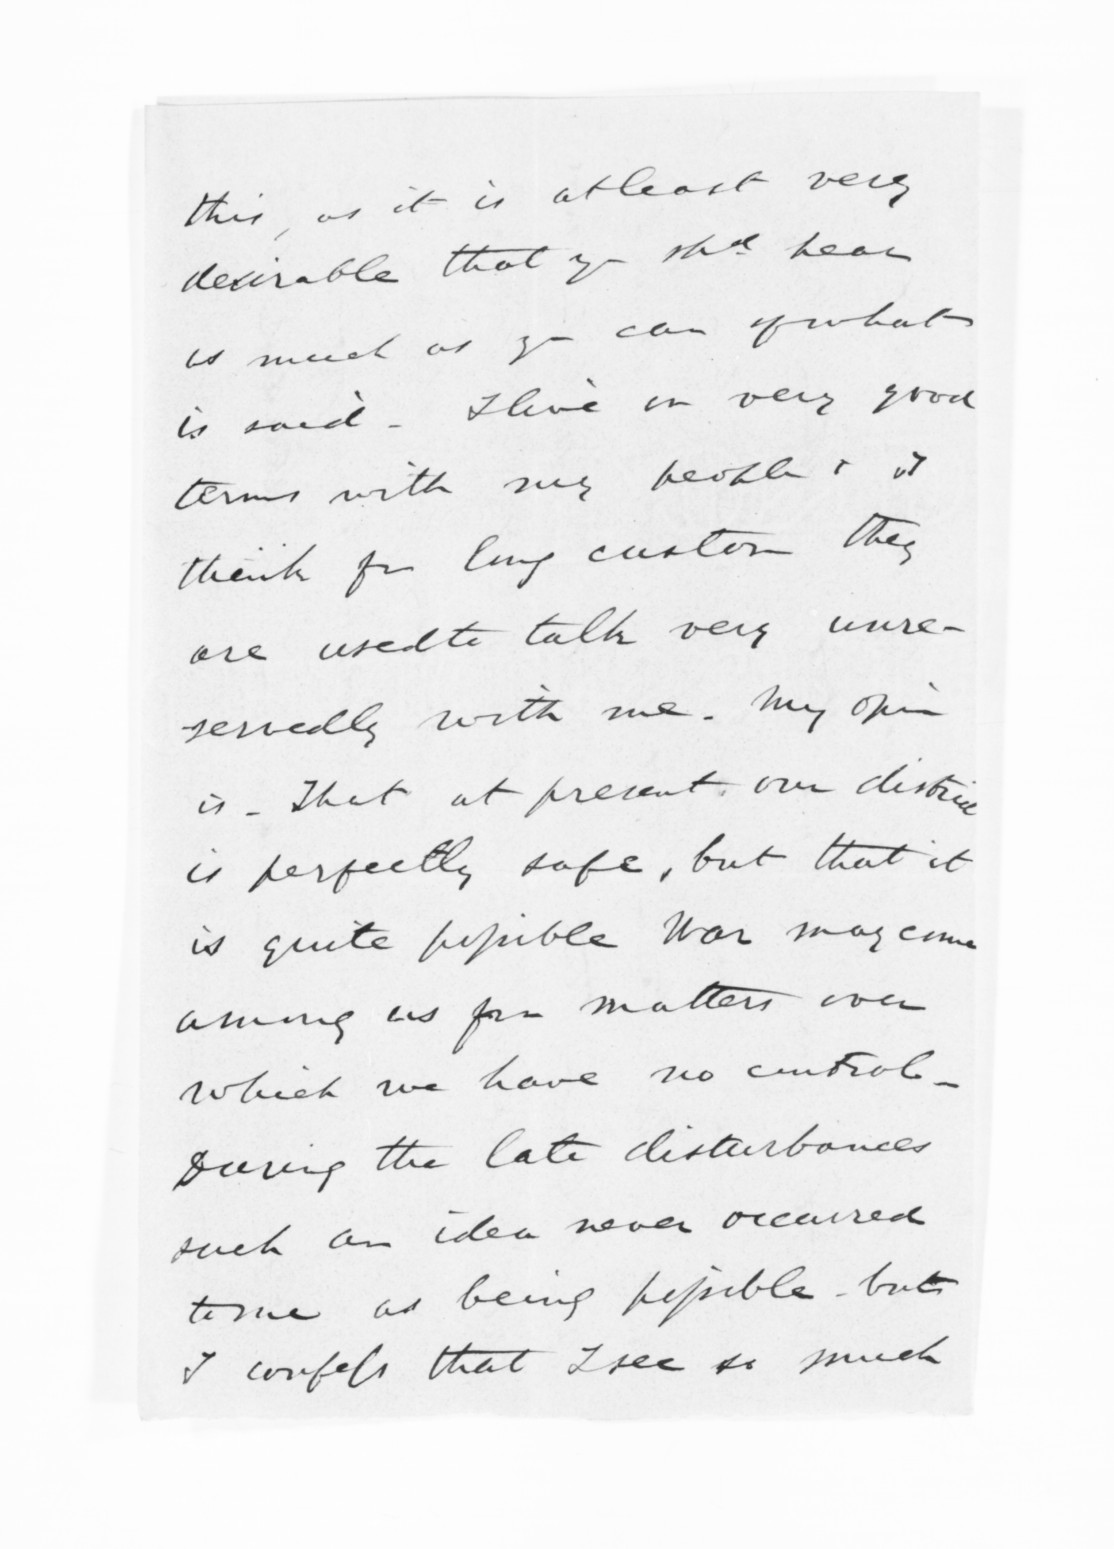 this, as it is at least very
desirable that yu shd hear
as much as yu can of what
is said - I live on very good
terms with my people & I
think fm long custom they
are used to talk very unre-
servedly with me - My opin
is - That at present our district
is perfectly safe, but that it
is quite possible War may come
among us from matters over
which we have no control -
During the late disturbances
such an idea never occurred
to me as being possible - but
I confess that I see so much